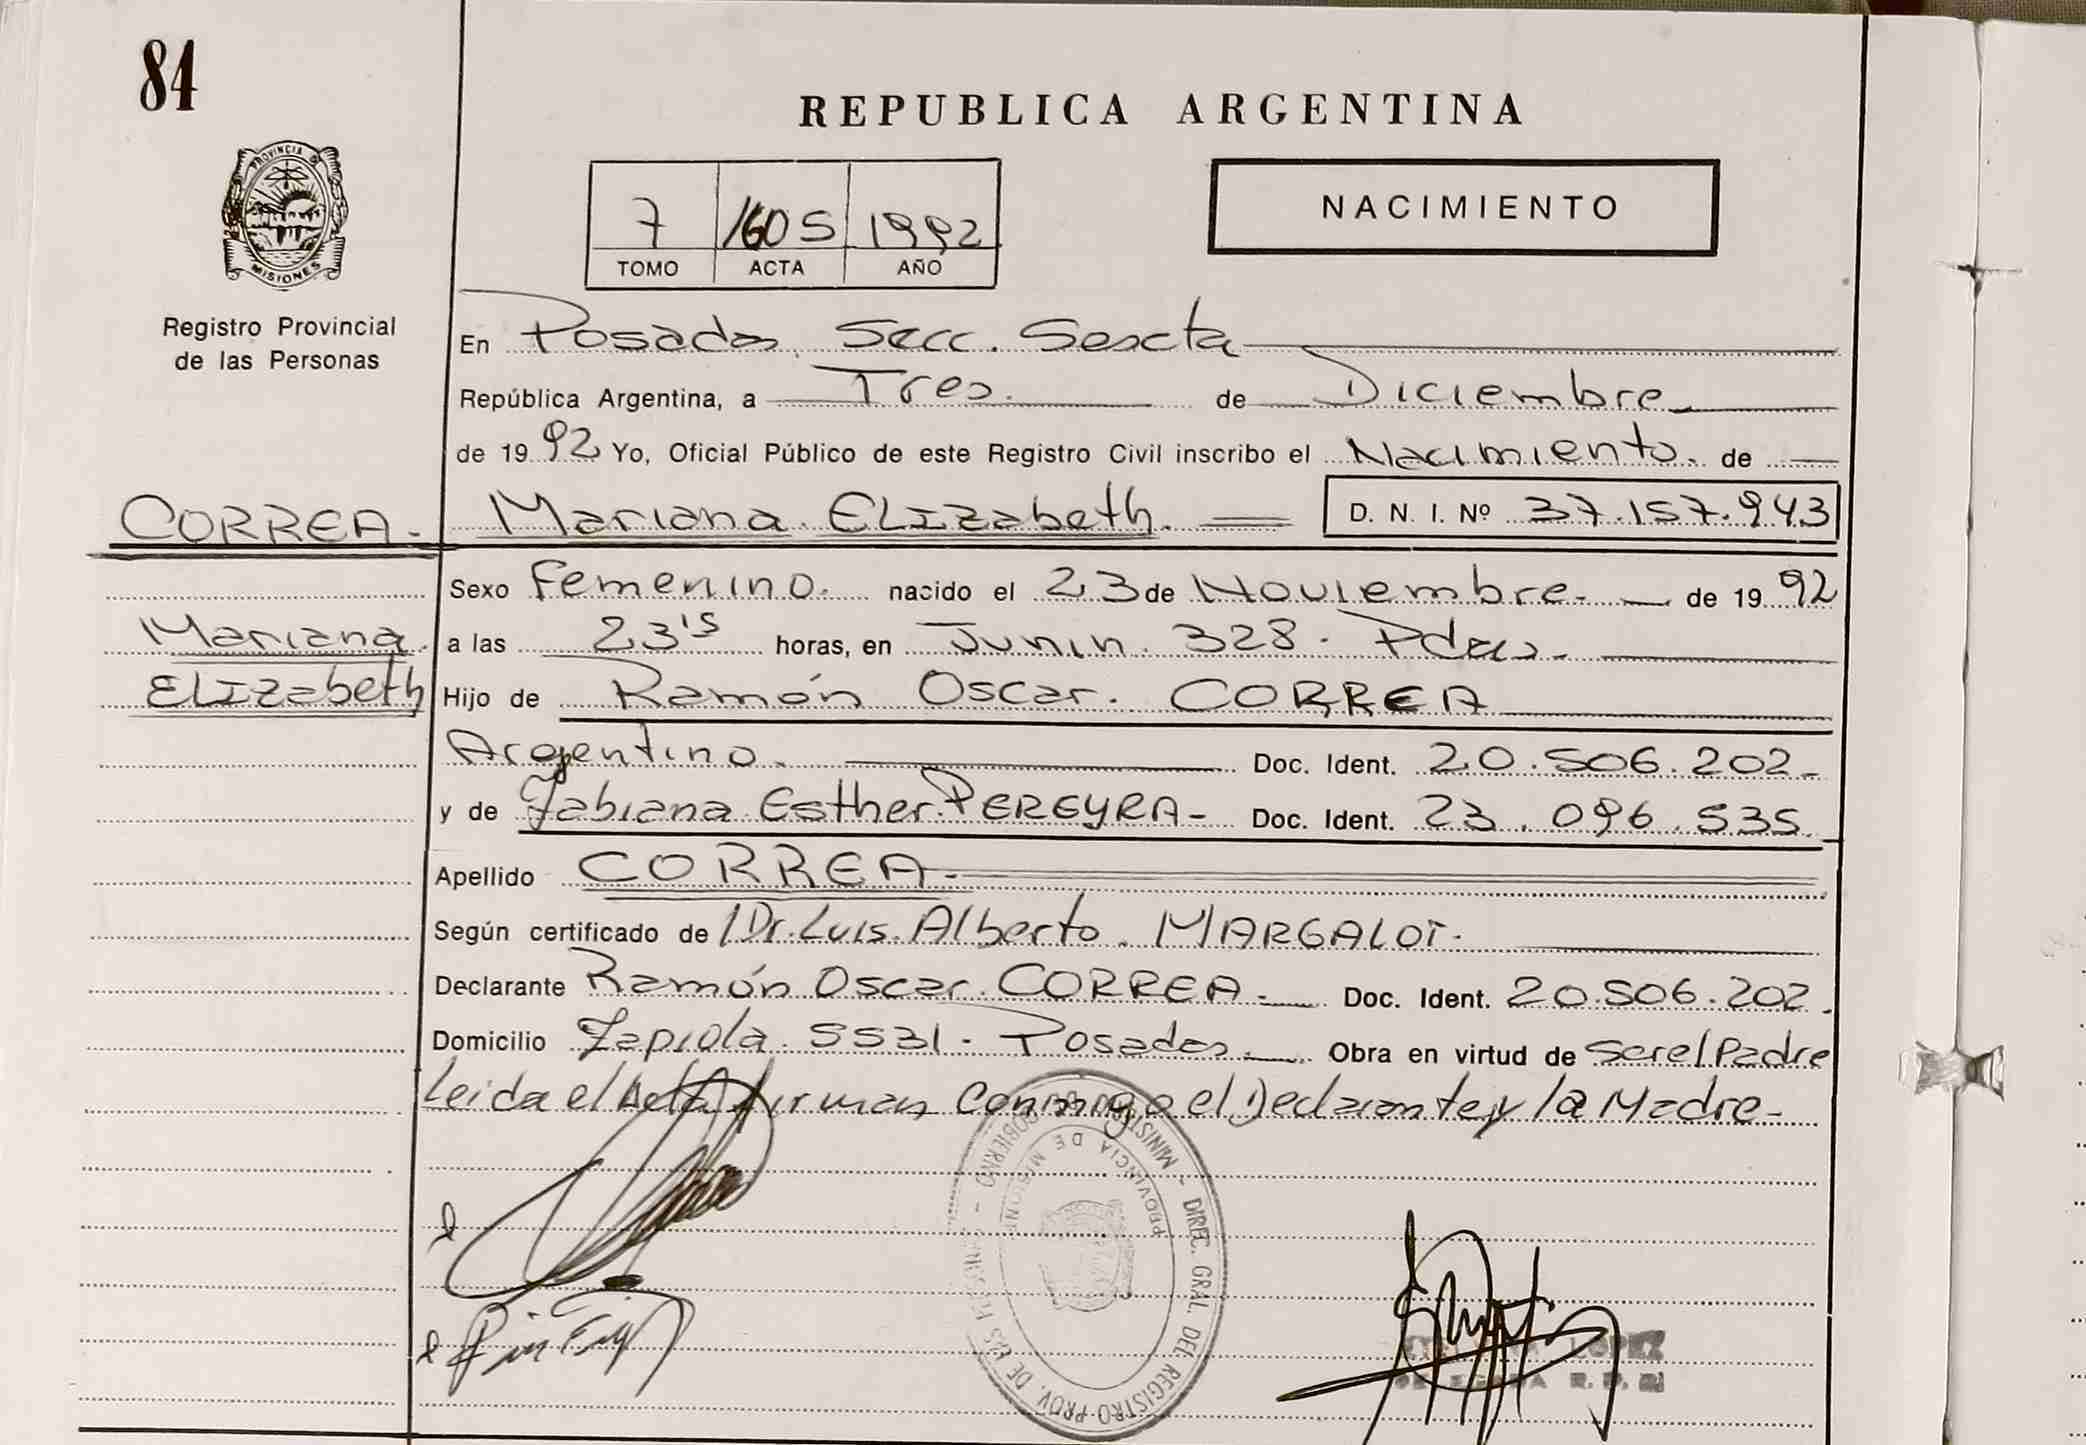 84
REPUBLICA ARGENTINA
PROVINCIA D
MISIONES
Registro Provincial
de las Personas
7 1605 1992
TOMO ACTA AÑO
NACIMIENTO
En Posadas, Secc. Sexcta
República Argentina, a Tres. de Diciembre
de 1992 Yo, Oficial Público de este Registro Civil inscribo el Nacimiento. de
CORREA - Mariana ELIzabeth. D. N. I. Nº 37.157.943
Sexo Femenino. nacido el 23 de Noviembre. de 1992
Mariana a las 23'15 horas, en Junin. 328. Pdas.
ELIzabeth Hijo de Ramón Oscar. CORREA
Argentino. Doc. Ident. 20.506.202-
y de Fabiana Esther. PEREYRA- Doc. Ident. 23.096.535
Apellido CORREA-
Según certificado de Dr. Luis Alberto. MARGALOT.
Declarante Ramón Oscar. CORREA- Doc. Ident. 20.506.202.
Domicilio Zapiola. 5531. Posadas. Obra en virtud de Ser el Padre
Leida el Acta firman Conmigo el Declarante y la Madre-
PROVINCIA DE MISIONES
MINIST GOBIERNO - DIREC. GRAL. DEL REGISTRO PROV. DE LAS PERSONAS
LOPEZ